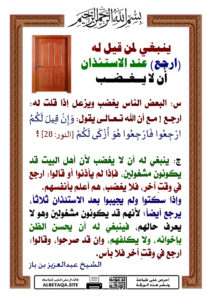 بسم الله الرحمن الرحيم
ينبغي لمن قيل له
(ارجع) عند الاستئذان
أن لا يغضب
س: البعض الناس يغضب ويزعل إذا قلت له:
ارجع! مع أن الله تعالى يقول: وَإِن قِيلَ لَكُمُ
ارْجِعُوا فَارْجِعُوا هُوَ أَزْكَى لَكُمْ [النور: 28] ؟
ج: ينبغي له أن لا يغضب لأن أهل البيت قد
يكونون مشغولين، فإذا لم يأذنوا أو قالوا: ارجع
في وقت آخر، فلا يغضب، هم أعلم بأنفسهم.
وإذا سكتوا ولم يجيبوا بعد الاستئذان ثلاثًا،
يرجع أيضًا؛ لأنهم قد يكونون مشغولين وهو لا
يعرف حالهم، فينبغي له أن يحسن الظن
بإخوانه، ولا يكلفهم، وإن قد صرحوا، وقالوا:
ارجع في وقت آخر فلا بأس.
الشيخ عبدالعزيز بن باز
ALBETAQA.SITE
احرص على طباعة
ونشر هذه الورقة